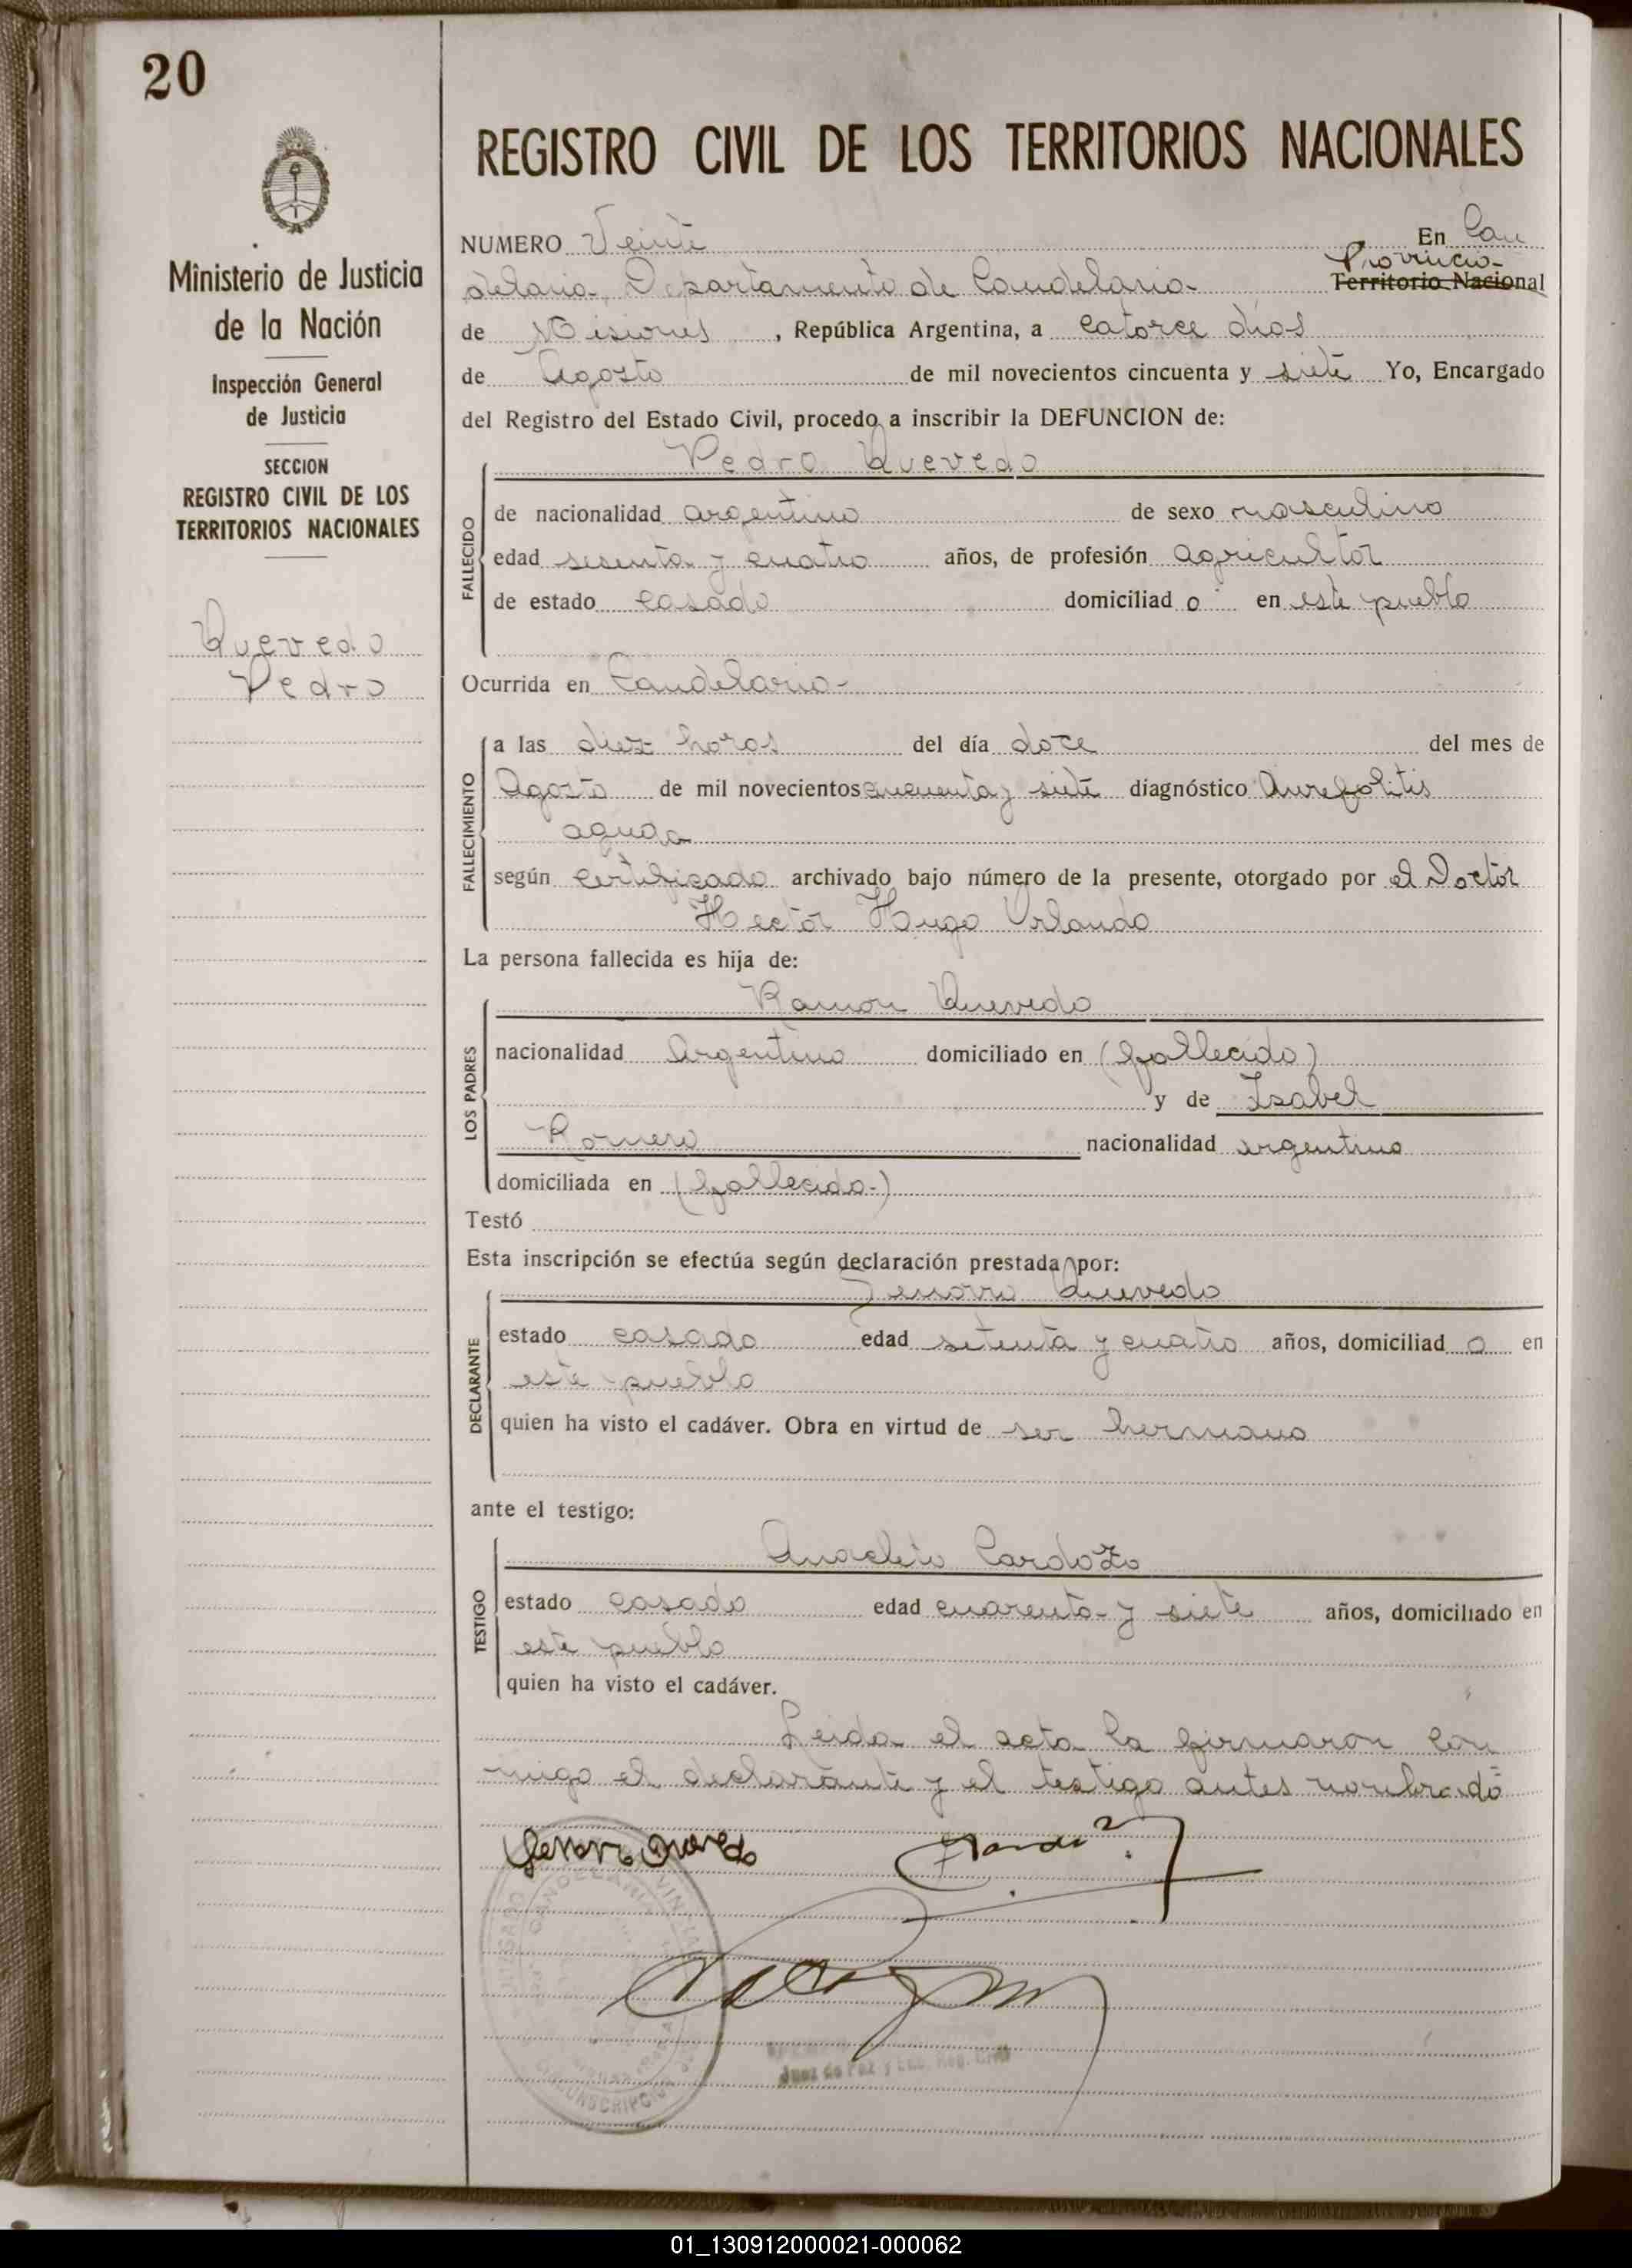 20
Ministerio de Justicia
de la Nación
Inspección General
de Justicia
SECCION
REGISTRO CIVIL DE LOS
TERRITORIOS NACIONALES
Quevedo
Pedro
REGISTRO CIVIL DE LOS TERRITORIOS NACIONALES
NUMERO Veinte En Can
Provincia
delaria, Departamento de Candelaria- Territorio Nacional
de Misiones, República Argentina, a catorce días
de Agosto de mil novecientos cincuenta y siete Yo, Encargado
del Registro del Estado Civil, procedo a inscribir la DEFUNCION de:
Pedro Quevedo
FALLECIDO
de nacionalidad argentino de sexo masculino
edad sesenta y cuatro años, de profesión agricultor
de estado casado domiciliad o en este pueblo
Ocurrida en Candelaria-
FALLECIMIENTO
a las diez horas del día doce del mes de
Agosto de mil novecientos cincuenta y siete diagnóstico
aguda
según certificado archivado bajo número de la presente, otorgado por el Doctor
Hector Hugo Orlando
La persona fallecida es hija de:
LOS PADRES
Ramon Quevedo
nacionalidad Argentino domiciliado en (fallecido)
y de Isabel
Romero nacionalidad argentina
domiciliada en (fallecida-)
Testó
Esta inscripción se efectúa según declaración prestada por:
DECLARANTE
Jenorro Quevedo
estado casado edad setenta y cuatro años, domiciliad o en
este pueblo
quien ha visto el cadáver. Obra en virtud de ser hermano
ante el testigo:
TESTIGO
Anacleto Cardozo
estado casado edad cuarenta y siete años, domiciliado en
este pueblo
quien ha visto el cadáver.
Leida el acta la firmaron con
migo el declarante y el testigo antes nombrado
CANDELARIA
Juez de Paz y Enc. Reg. Civil
01_130912000021-000062